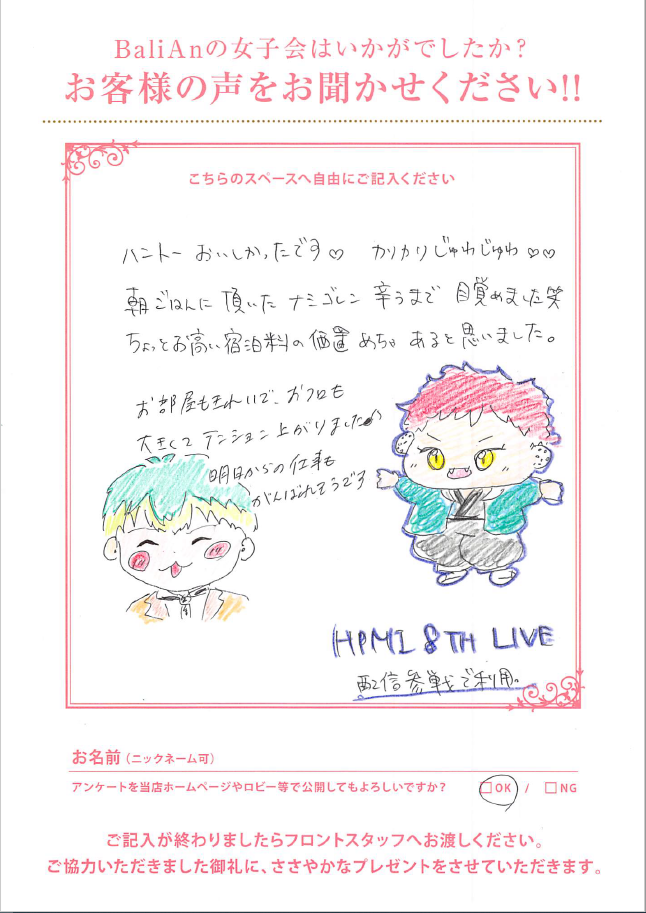 BaliAnの女子会はいかがでしたか?
お客様の声をお聞かせください!!
こちらのスペースへ自由にご記入ください
ハントー おいしかったです♡ カリカリじゅわじゅわ♡♡
朝ごはんに 頂いた ナミゴレン 辛うまで 目覚めました笑
ちょっとお高い宿泊料の価置 めちゃ あると思いました。
お部屋もきれいで、おフロも
大きくて テンション上がりました♪
明日からの仕事も
がんばれそうです
HPMI 8TH LIVE
配信参戦で利用。
お名前(ニックネーム可)
アンケートを当店ホームページやロビー等で公開してもよろしいですか? □OK / □NG
ご記入が終わりましたらフロントスタッフへお渡しください。
ご協力いただきました御礼に、ささやかなプレゼントをさせていただきます。